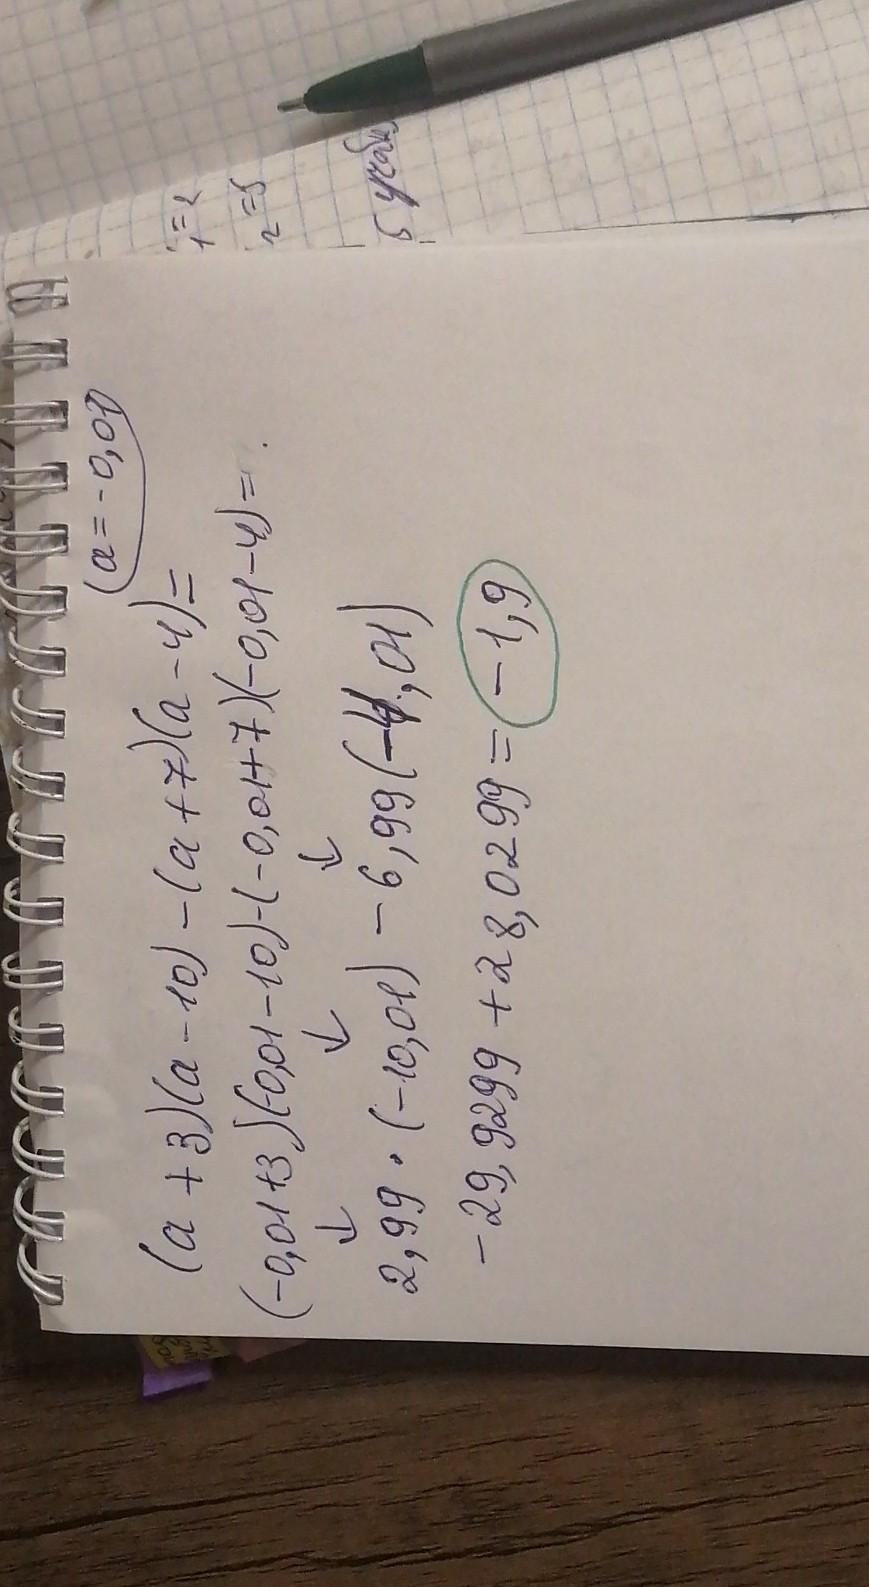 (a = -0,01)
(a + 3)(a - 10) - (a + 7)(a - 4) =
(-0,01+3)(-0,01-10)-(-0,01+7)(-0,01-4)=
2,99 · (-10,01) - 6,99(-4,01)
-29,9299 + 28,0299 = -1,9
1=2
2=5